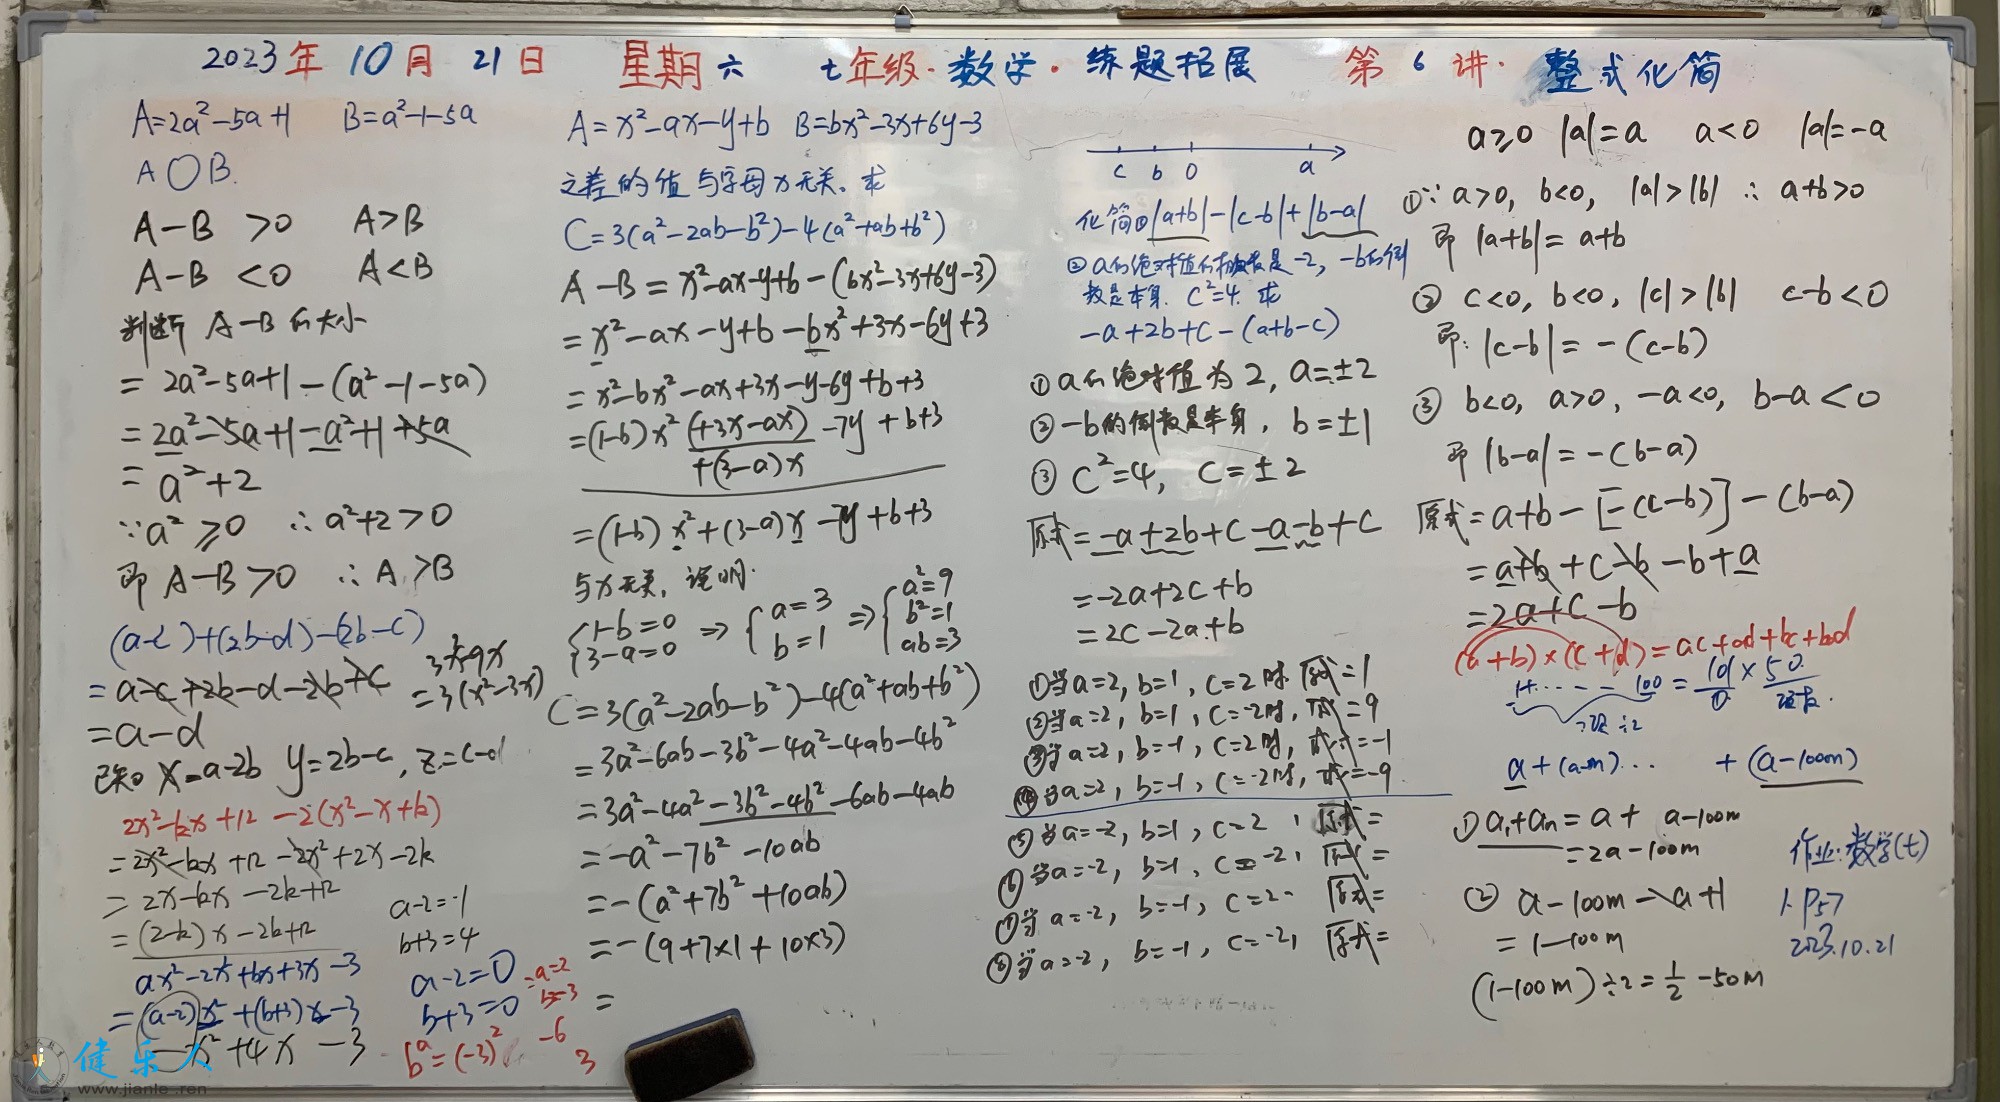 2023年 10月 21日 星期六 七年级·数学·练题拓展 第6讲·整式化简
A=2a²-5a+1 B=a²-1-5a
A○B.
A-B >0 A>B
A-B <0 A<B
判断 A-B的大小
= 2a²-5a+1-(a²-1-5a)
= 2a²-5a+1-a²+1+5a
= a²+2
∵a²≥0 ∴a²+2>0
即 A-B>0 ∴A>B
(a-c)+(2b-d)-(2b-c)
= a-c+2b-d-2b+c
=a-d
3x²-9x
=3(x²-3x)
已知 x=a-2b y=2b-c, z=c-d
2x²-kx+12-2(x²-x+k)
=2x²-kx+12-2x²+2x-2k
= 2x-kx-2k+12
=(2-k)x-2k+12
ax²-2x²+bx+3x-3
=(a-2)x²+(b+3)x-3
-x²+4x-3
a-2=-1
b+3=4
a-2=0
b+3=0
a=2
b=-3
bᵃ=(-3)²
-6
3
A=x²-ax-y+b B=bx²-3x+6y-3
之差的值与字母x无关。求
C=3(a²-2ab-b²)-4(a²+ab+b²)
A-B=x²-ax-y+b-(bx²-3x+6y-3)
=x²-ax-y+b-bx²+3x-6y+3
=x²-bx²-ax+3x-y-6y+b+3
=(1-b)x²(+3x-ax)-7y+b+3
+(3-a)x
=(1-b)x²+(3-a)x-7y+b+3
与x无关, 说明.
{1-b=0 3-a=0 ⇒ {a=3 b=1 ⇒ {a²=9 b²=1 ab=3
C=3(a²-2ab-b²)-4(a²+ab+b²)
=3a²-6ab-3b²-4a²-4ab-4b²
=3a²-4a²-3b²-4b²-6ab-4ab
=-a²-7b²-10ab
=-(a²+7b²+10ab)
=-(9+7×1+10×3)
=
c b 0 a
化简①|a+b|-|c-b|+|b-a|
②a的绝对值的相反数是-2, -b的倒
数是本身. c²=4. 求
-a+2b+c-(a+b-c)
①a的绝对值为2, a=±2
②-b的倒数是本身, b=±1
③c²=4, c=±2
原式=-a+2b+c-a-b+c
=-2a+2c+b
=2c-2a+b
①当a=2, b=1, c=2时. 原式=1
②当a=2, b=1, c=-2时, 原式=9
③当a=2, b=-1, c=2时, 原式=-1
④当a=2, b=-1, c=-2时, 原式=-9.
⑤当a=-2, b=1, c=2, 原式=
⑥当a=-2, b=1, c=-2, 原式=
⑦当a=-2, b=-1, c=2 原式=
⑧当a=-2, b=-1, c=-2, 原式=
a≥0 |a|=a a<0 |a|=-a
①∵a>0, b<0, |a|>|b| ∴a+b>0
即 |a+b|=a+b
② c<0, b<0, |c|>|b| c-b<0
即: |c-b|=-(c-b)
③ b<0, a>0, -a<0, b-a<0
即 |b-a|=-(b-a)
原式=a+b-[-(c-b)]-(b-a)
=a+b+c-b-b+a
=2a+c-b
(a+b)×(c+d)=ac+ad+bc+bd
1+······100=101×50
a+(a-m)... +(a-100m)
①a₁+aₙ=a+ a-100m
=2a-100m
② a-100m-a+1
=1-100m
(1-100m)÷2=1/2-50m
作业:数学(七)
1. P57
2023.10.21
健乐人
www.jianle.ren